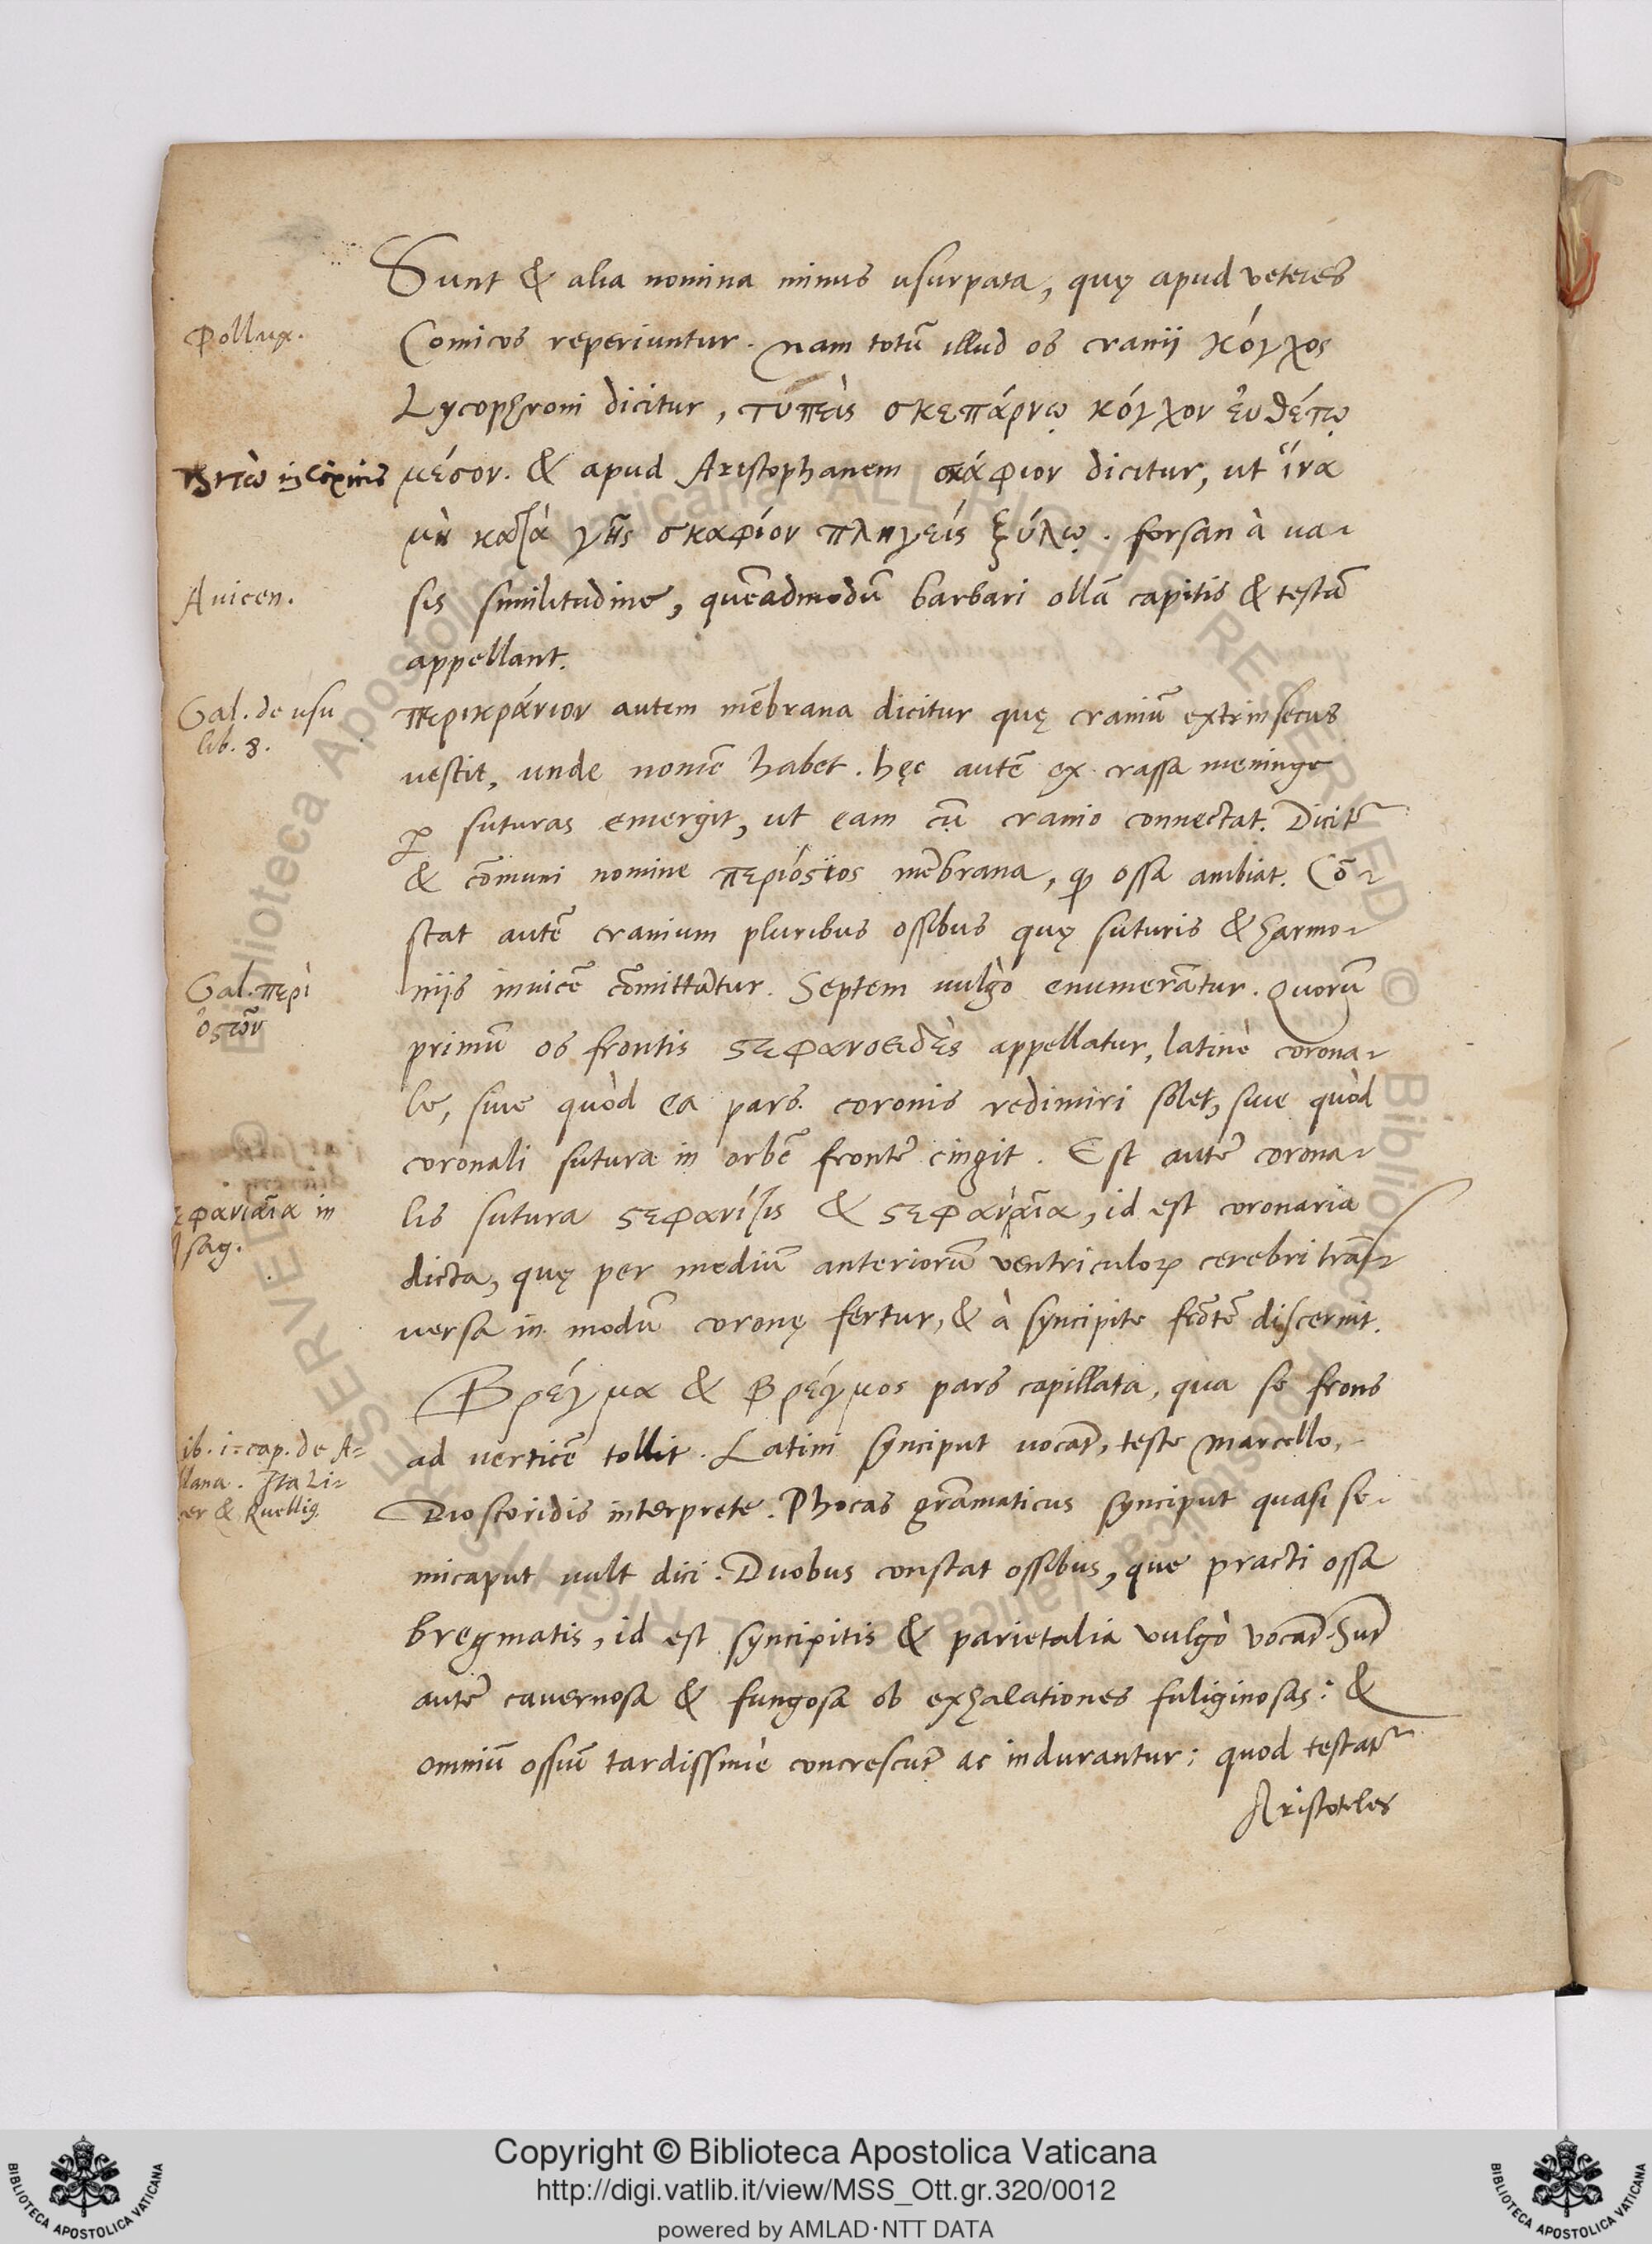 Sunt & alia nomina minus usurpata, quę apud veteres
Pollux.
Comicos reperiuntur. nam totũ illud os cranii κόγχος
Lycophroni dicitur, τύπεὶς σκεπάρνῳ κόγχον ἐυθέτῳ
μέσον. & apud Aristophanem σκάφιον dicitur, ut ἵνα
μὴ καϑὰ γῆς σκαφίον πληγεὶς ξύλῳ. forsan à va-
Avicen.
sis similitudine, quẽadmodũ barbari ollã capitis & testã
appellant.
Gal. de usu
lib. 8.
περικράνιον autem mẽbrana dicitur quę craniũ extrinsecus
vestit, unde nomẽ habet. hęc autẽ ex crassa meninge
ꝑ suturas emergit, ut eam cũ cranio connectat. Dicit᷑
& cõmuni nomine περιόϛιος mẽbrana, ꝙ ossa ambiat. Cõ-
stat autẽ cranium pluribus ossibus quę suturis & harmo-
Gal. περὶ
ὀϛῶν
niis invicẽ cõmittũtur. Septem vulgò enumerãtur. Quorũ
primũ os frontis ϛεφανοειδὲς appellatur, latinè corona-
le, sive quòd ea pars coronis redimiri solet, sive quòd
coronali sutura in orbẽ frontẽ cingit. Est autẽ corona-
εφανιαῖα in
Isag.
lis sutura ϛεφανίτις & ϛεφανιαῖα, id est coronaria
dicta, quę per mediũ anteriorũ ventriculoꝝ cerebri trãs-
versa in modũ coronę fertur, & à syncipite frõtẽ discernit.
Βρέγμα & βρέγμος pars capillata, qua se frons
ib. i. cap. de A-
llana. Itali-
er & Ruellig.
ad verticẽ tollit. Latini synciput vocãt, teste Marcello,
Dioscoridis interprete. Phocas grãmaticus synciput quasi se-
micaput vult dici. Duobus constat ossibus, que practi ossa
bregmatis, id est syncipitis & parietalia vulgò vocãt. Sũt
autẽ cavernosa & fungosa ob exhalationes fuliginosas: &
omniũ ossiũ tardissimè concrescũt ac indurantur: quod testat᷑
Aristoteles
Copyright © Biblioteca Apostolica Vaticana
http://digi.vatlib.it/view/MSS_Ott.gr.320/0012
powered by AMLAD·NTT DATA
BIBLIOTECA APOSTOLICA VATICANA
BIBLIOTECA APOSTOLICA VATICANA